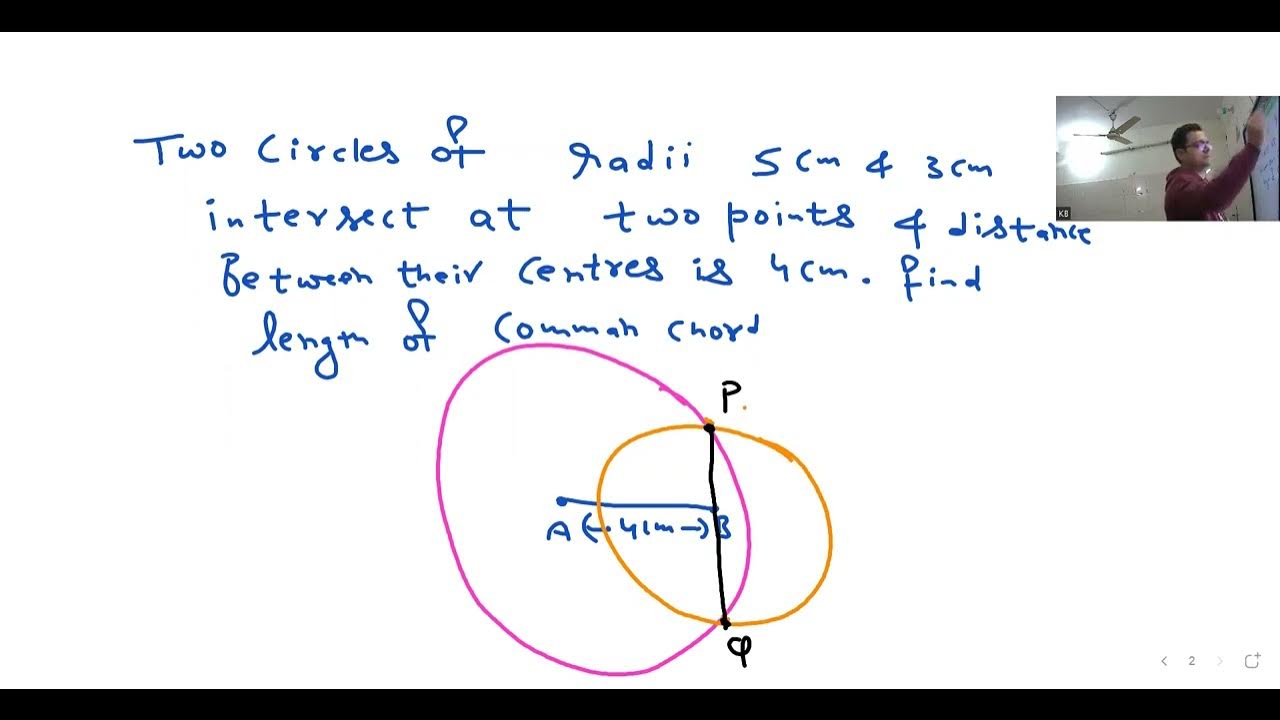 Two Circles of radii 5cm & 3cm
intersect at two points & distance
Between their Centres is 4cm. find
length of Common chord
P.
A (← 4cm →) B
Q
KB
< 2 >